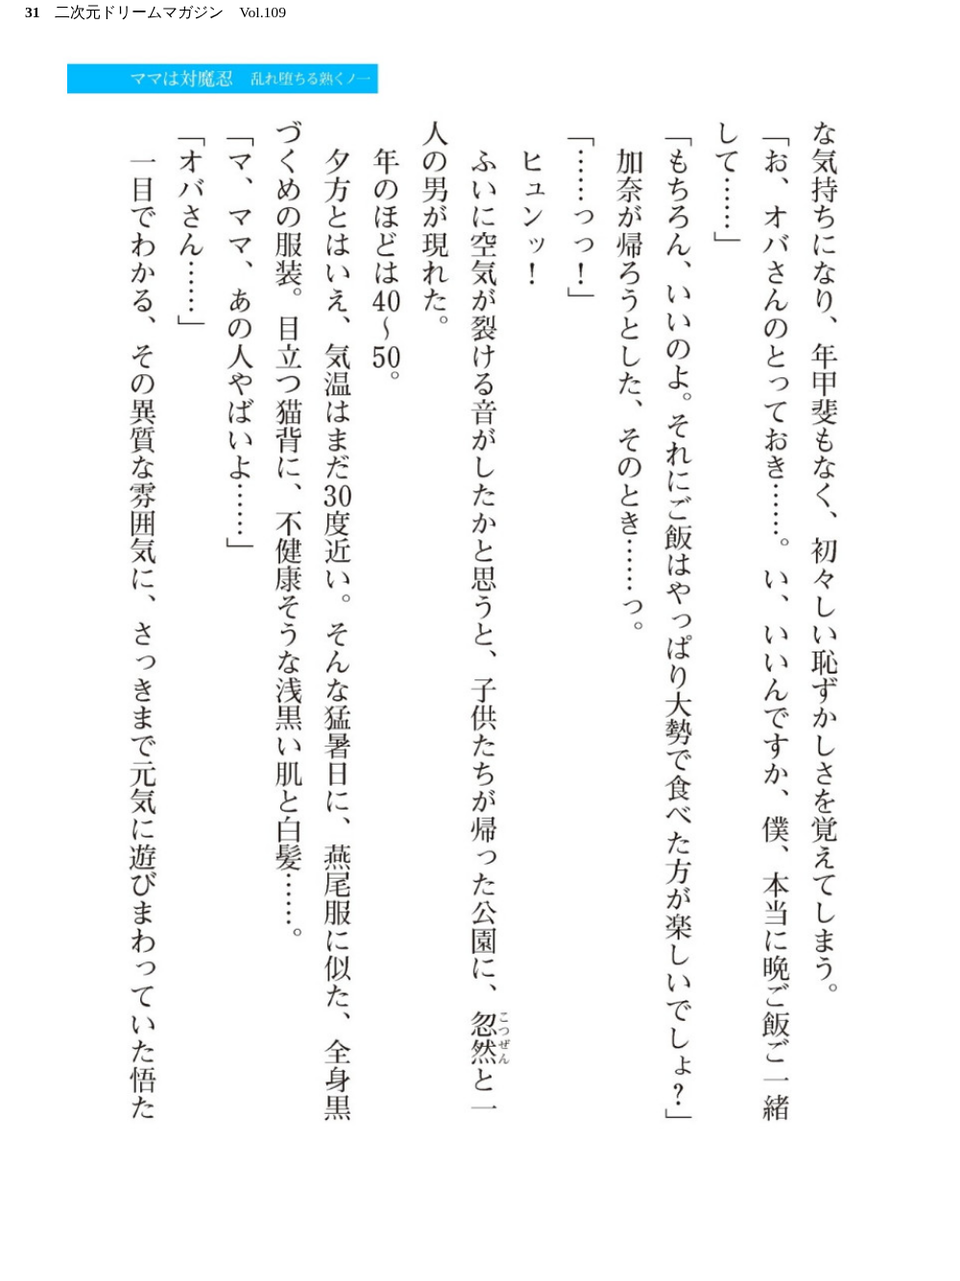 31 二次元ドリームマガジン Vol.109
ママは対魔忍 乱れ堕ちる熟くノ一
な気持ちになり、年甲斐もなく、初々しい恥ずかしさを覚えてしまう。
「お、オバさんのとっておき……。い、いいんですか、僕、本当に晩ご飯ご一緒
して……」
「もちろん、いいのよ。それにご飯はやっぱり大勢で食べた方が楽しいでしょ?」
加奈が帰ろうとした、そのとき……っ。
「……っっ!」
ヒュンッ!
ふいに空気が裂ける音がしたかと思うと、子供たちが帰った公園に、忽然と一
こつぜん
人の男が現れた。
年のほどは40〜50。
夕方とはいえ、気温はまだ30度近い。そんな猛暑日に、燕尾服に似た、全身黒
づくめの服装。目立つ猫背に、不健康そうな浅黒い肌と白髪……。
「マ、ママ、あの人やばいよ……」
「オバさん……」
一目でわかる、その異質な雰囲気に、さっきまで元気に遊びまわっていた悟た